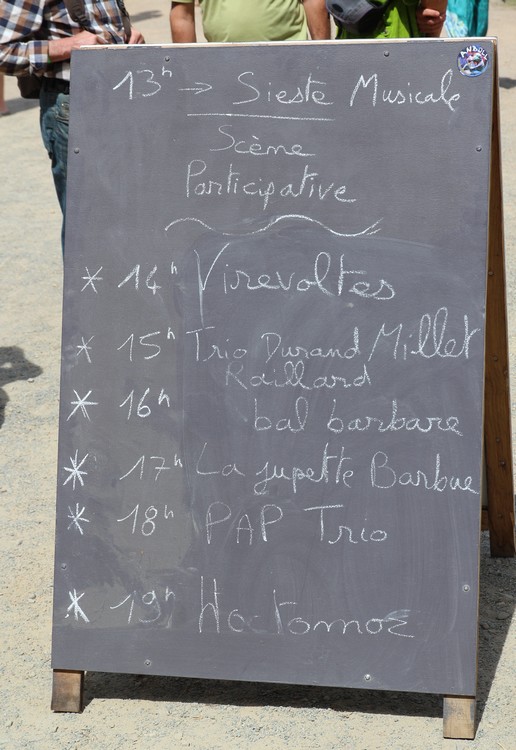 13h → Sieste Musicale
Scène
Participative
* 14h Virevoltes
* 15h Trio Durand Millet
Raillard
* 16h bal barbare
* 17h La jupette Barbue
* 18h PAP Trio
* 19h